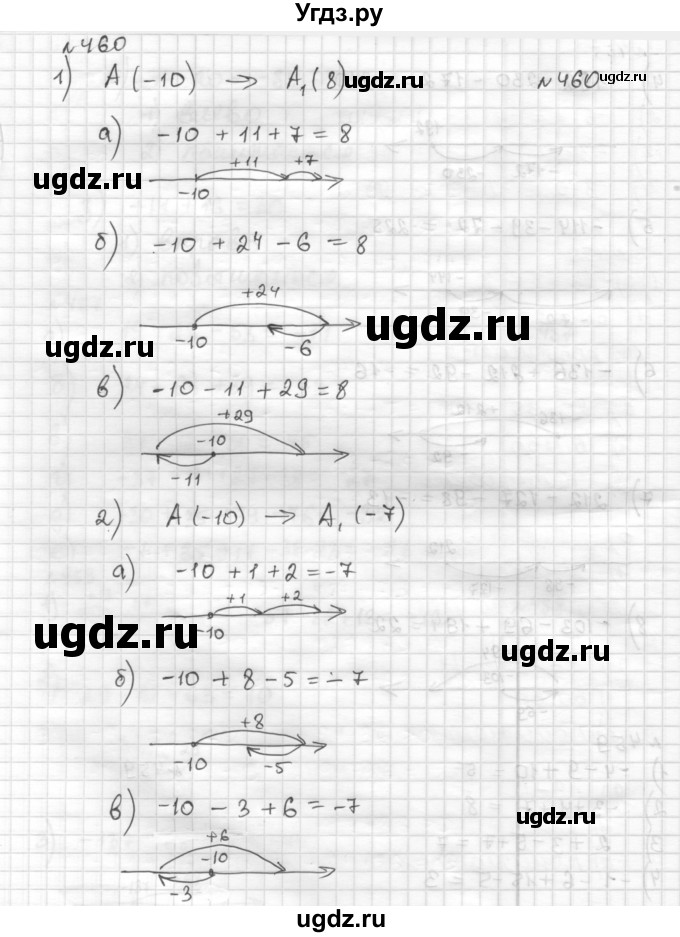 Угдз.ру
№460
1) А (-10) → А₁ (8) ugdz.ru №460 ugdz.ru
а) -10 + 11 + 7 = 8
+11 +7
ugdz.ru
-10
б) -10 + 24 - 6 = 8
+24
ugdz.ru
ugdz.ru -10 -6
в) -10 - 11 + 29 = 8
+29
-10
-11
2) А (-10) → А₁ (-7)
а) -10 + 1 + 2 = -7
+1 +2
ugdz.ru -10
ugdz.ru
б) -10 + 8 - 5 = -7
+8
-10 -5
в) -10 - 3 + 6 = -7
ugdz.ru
+6
-10
-3
ugdz.ru